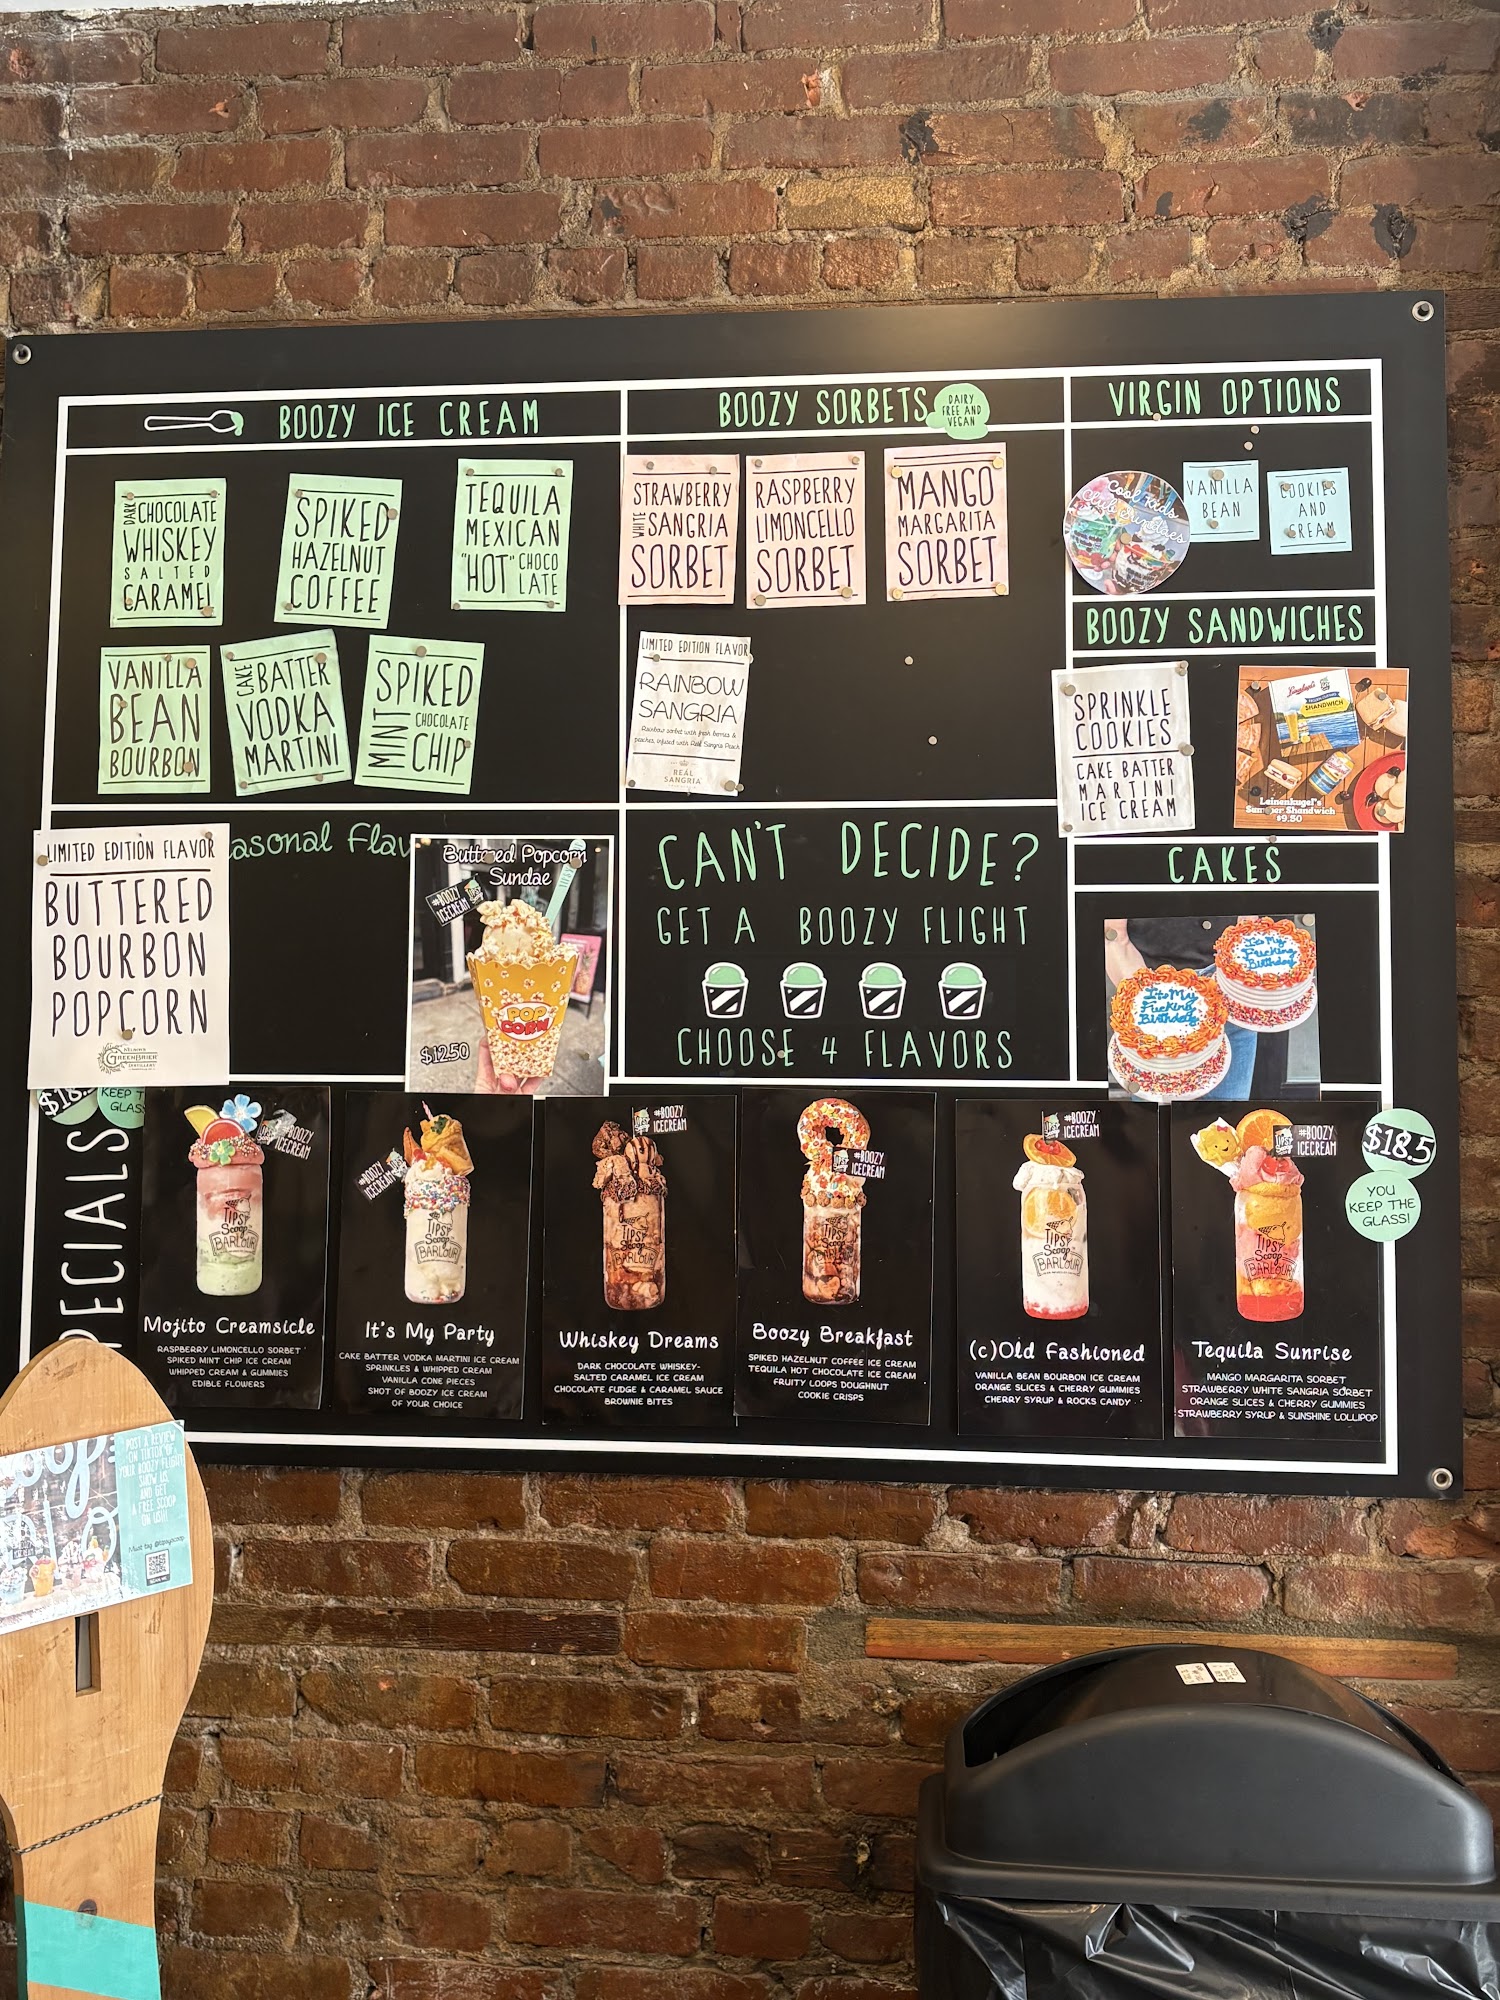 BOOZY ICE CREAM
DARK CHOCOLATE
WHISKEY
SALTED
CARAMEL
SPIKED
HAZELNUT
COFFEE
TEQUILA
MEXICAN
"HOT" CHOCO
LATE
VANILLA
BEAN
BOURBON
CAKE BATTER
VODKA
MARTINI
SPIKED
MINT CHOCOLATE
CHIP
BOOZY SORBETS
DAIRY
FREE AND
VEGAN
STRAWBERRY
WHITE SANGRIA
SORBET
RASPBERRY
LIMONCELLO
SORBET
MANGO
MARGARITA
SORBET
LIMITED EDITION FLAVOR
RAINBOW
SANGRIA
Rainbow sorbet with fresh berries &
peaches, infused with Real Sangria Peach
REAL
SANGRIA
VIRGIN OPTIONS
Cool Kids
Club Sundaes
VANILLA
BEAN
COOKIES
AND
CREAM
BOOZY SANDWICHES
SPRINKLE
COOKIES
CAKE BATTER
MARTINI
ICE CREAM
Leinenkugel's
SHANDWICH
Leinenkugel's
Summer Shandwich
$9.50
CAKES
It's My
Fucking
Birthday
It's My
Fucking
Birthday
LIMITED EDITION FLAVOR
BUTTERED
BOURBON
POPCORN
NELSON'S
GREEN BRIER
DISTILLERY
asonal Flav
Buttered Popcorn
Sundae
#BOOZY
ICECREAM
TIPSY
POP
CORN
$12.50
CAN'T DECIDE?
GET A BOOZY FLIGHT
CHOOSE 4 FLAVORS
$18.
KEEP T
GLAS
PECIALS
#BOOZY
ICECREAM
TIPSY
Scoop
BARLOUR
Mojito Creamsicle
RASPBERRY LIMONCELLO SORBET
SPIKED MINT CHIP ICE CREAM
WHIPPED CREAM & GUMMIES
EDIBLE FLOWERS
#BOOZY
ICECREAM
TIPSY
Scoop
BARLOUR
It's My Party
CAKE BATTER VODKA MARTINI ICE CREAM
SPRINKLES & WHIPPED CREAM
VANILLA CONE PIECES
SHOT OF BOOZY ICE CREAM
OF YOUR CHOICE
#BOOZY
ICECREAM
TIPSY
Scoop
BARLOUR
Whiskey Dreams
DARK CHOCOLATE WHISKEY-
SALTED CARAMEL ICE CREAM
CHOCOLATE FUDGE & CARAMEL SAUCE
BROWNIE BITES
#BOOZY
ICECREAM
TIPSY
Scoop
BARLOUR
Boozy Breakfast
SPIKED HAZELNUT COFFEE ICE CREAM
TEQUILA HOT CHOCOLATE ICE CREAM
FRUITY LOOPS DOUGHNUT
COOKIE CRISPS
#BOOZY
ICECREAM
TIPSY
Scoop
BARLOUR
(c)Old Fashioned
VANILLA BEAN BOURBON ICE CREAM
ORANGE SLICES & CHERRY GUMMIES
CHERRY SYRUP & ROCKS CANDY
#BOOZY
ICECREAM
TIPSY
Scoop
BARLOUR
Tequila Sunrise
MANGO MARGARITA SORBET
STRAWBERRY WHITE SANGRIA SORBET
ORANGE SLICES & CHERRY GUMMIES
STRAWBERRY SYRUP & SUNSHINE LOLLIPOP
$18.5
YOU
KEEP THE
GLASS!
POST A REVIEW
ON TIKTOK OF
YOUR BOOZY FLIGHT
SHOW US
AND GET
A FREE SCOOP
ON US!!
Must tag @tipsyscoop